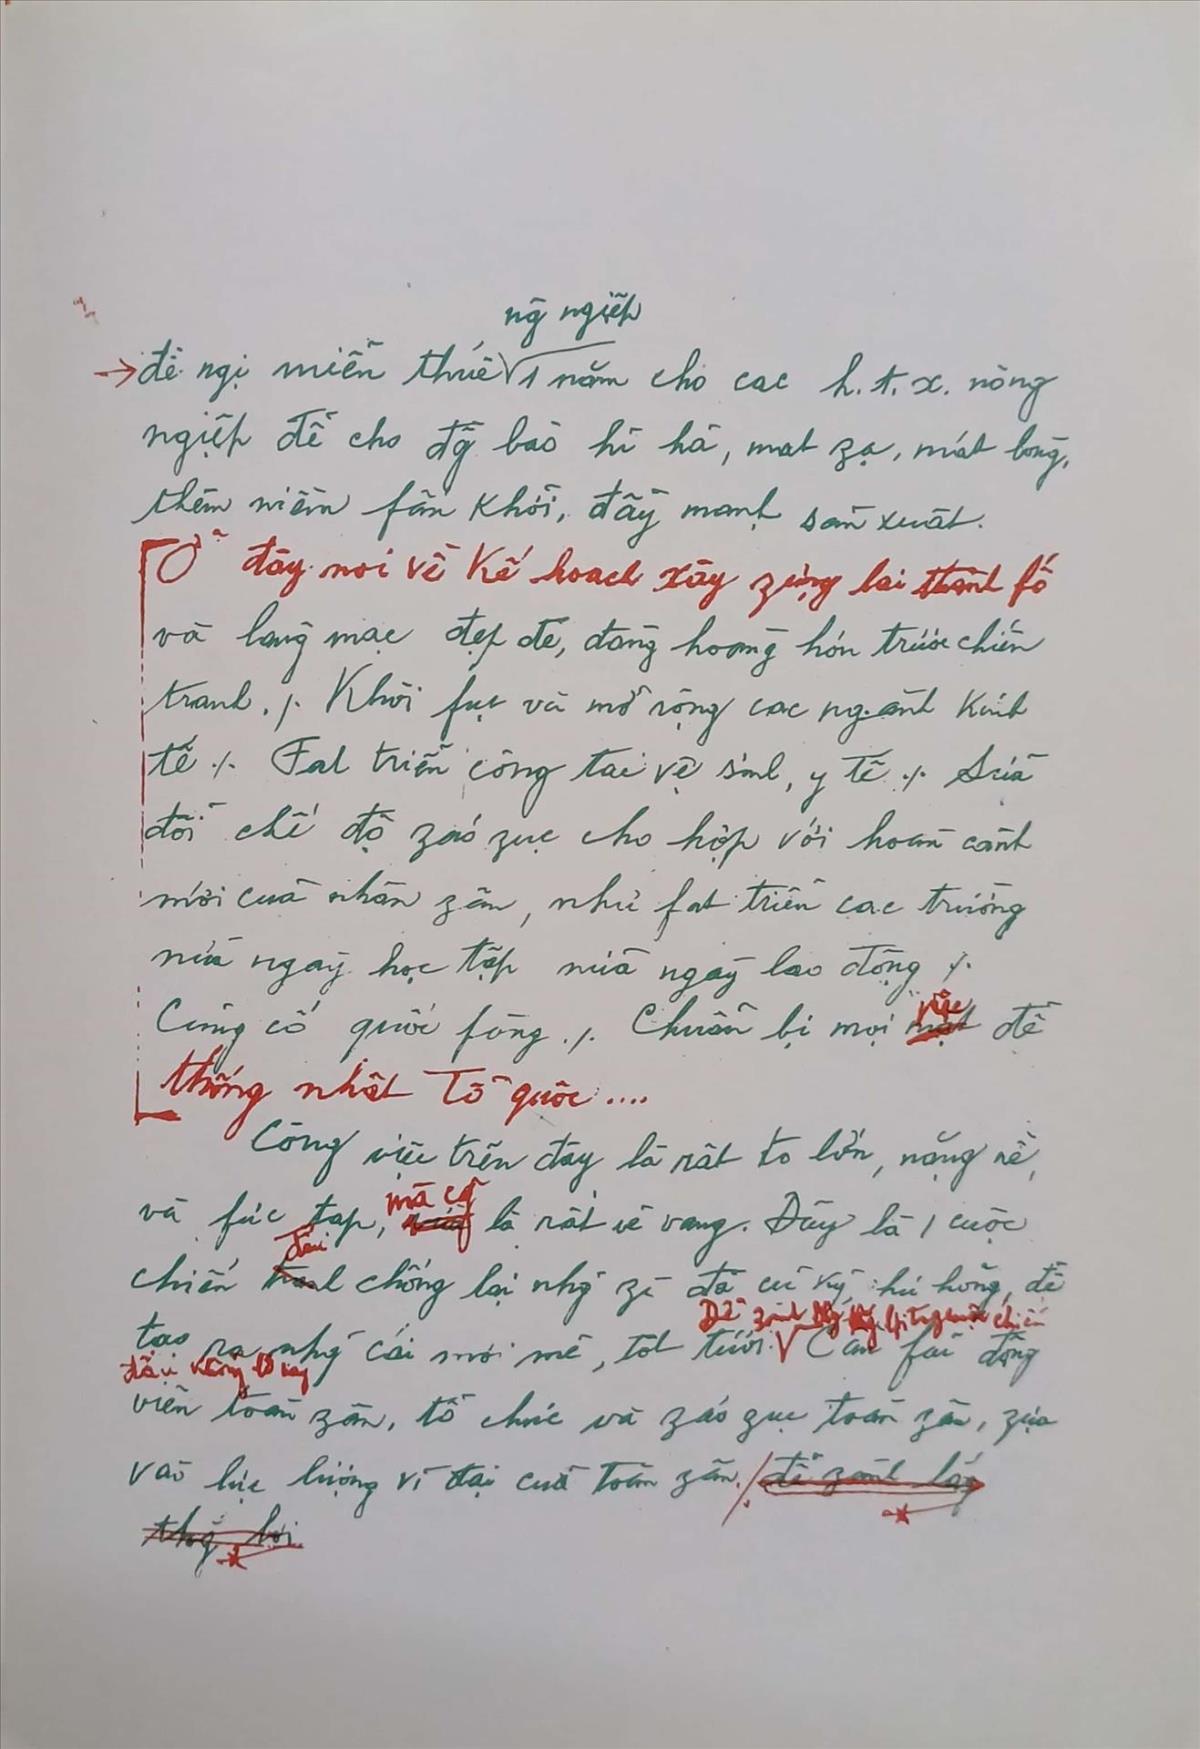 ng̃ ngiệp
→ đề ngị miễn thuế √ 1 năm cho các h.t.x. nông
ngiệp để cho đg̀ bào hỉ hả, mát zạ, mát lòng,
thêm niềm fấn khởi, đẩy mạnh sản xuất.
Ở đây nói về kế hoạch xây zựng lại thành fố
và làng mạc đẹp đẽ, đàng hoàng hơn trước chiến
tranh. ./. Khôi fục và mở rộng các ngành kinh
tế ./. Fát triển công tác vệ sinh, y tế ./. Sửa
đổi chế độ záo zục cho hợp với hoàn cảnh
mới của nhân zân, như fát triển các trường
nửa ngày học tập nửa ngày lao động ./.
việc
Củng cố quốc fòng ./. Chuẩn bị mọi mặt để
thống nhất Tổ quốc ....
Công việc trên đây là rất to lớn, nặng nề,
mà cg̃
và fức tạp, là rất vẻ vang. Đây là 1 cuộc
đấu
chiến chống lại nhg̃ zì đã cũ kỹ, hư hỏng, để
Để zành lấy thǵ lợi trong cuộc chiến
tạo ra nhg̃ cái mới mẻ, tốt tươi. √ Cần fải động
đấu khổng lồ này
viên toàn zân, tổ chức và záo zục toàn zân, zựa
vào lực lượng vĩ đại của toàn zân. / để zành lấy
thǵ lợi.